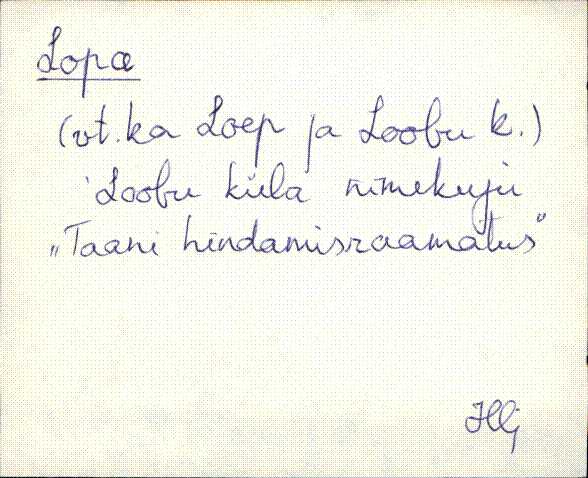 Lopæ
(vt. ka Loep ja Loobu k.)
Loobu küla nimekuju
„Taani hindamisraamatus"
Hlj